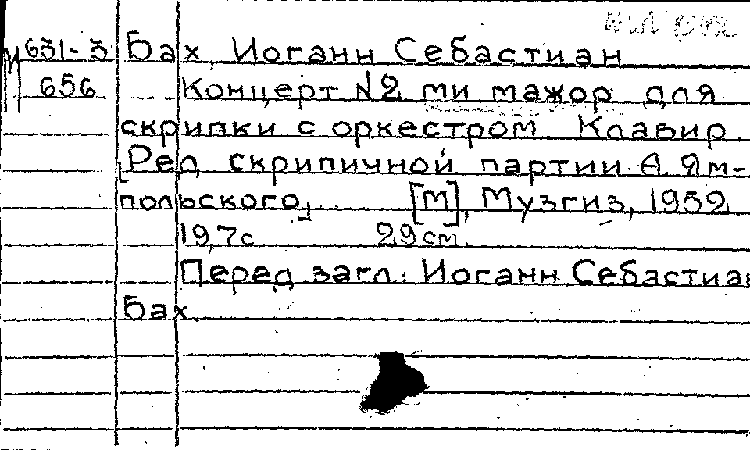 П 631-3 Бах, Иоганн Себастиан
656 Концерт №2 ми мажор для
скрипки с оркестром. Клавир.
[Ред. скрипичной партии А. Ям-
польского]. [М], Музгиз, 1952
19,7с 29см.
Перед загл.: Иоганн Себастиан
Бах.